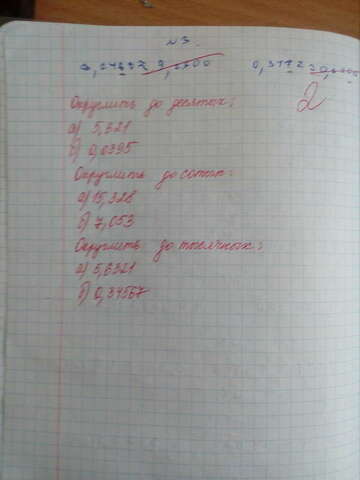 №3.
Округлить до десятых:
а) 5,321
б) 0,0395
Округлить до сотых:
а) 15,328
б) 7,053
Округлить до тысячных:
а) 5,6321
б) 0,34567
2